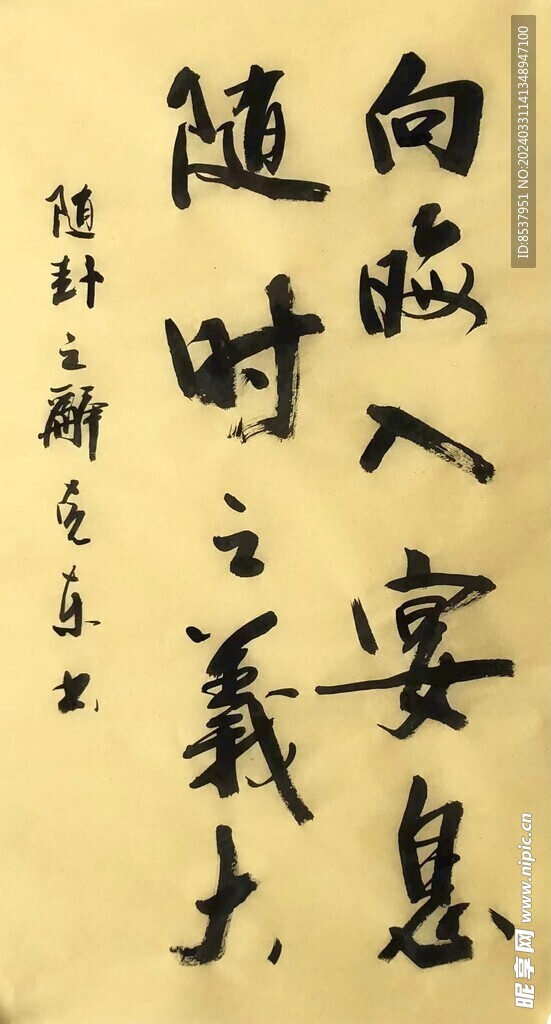 向晦入宴息
随时之義大
随卦之辭克东书
ID:8537951 NO:20240331141348947100
昵享网 www.nipic.cn